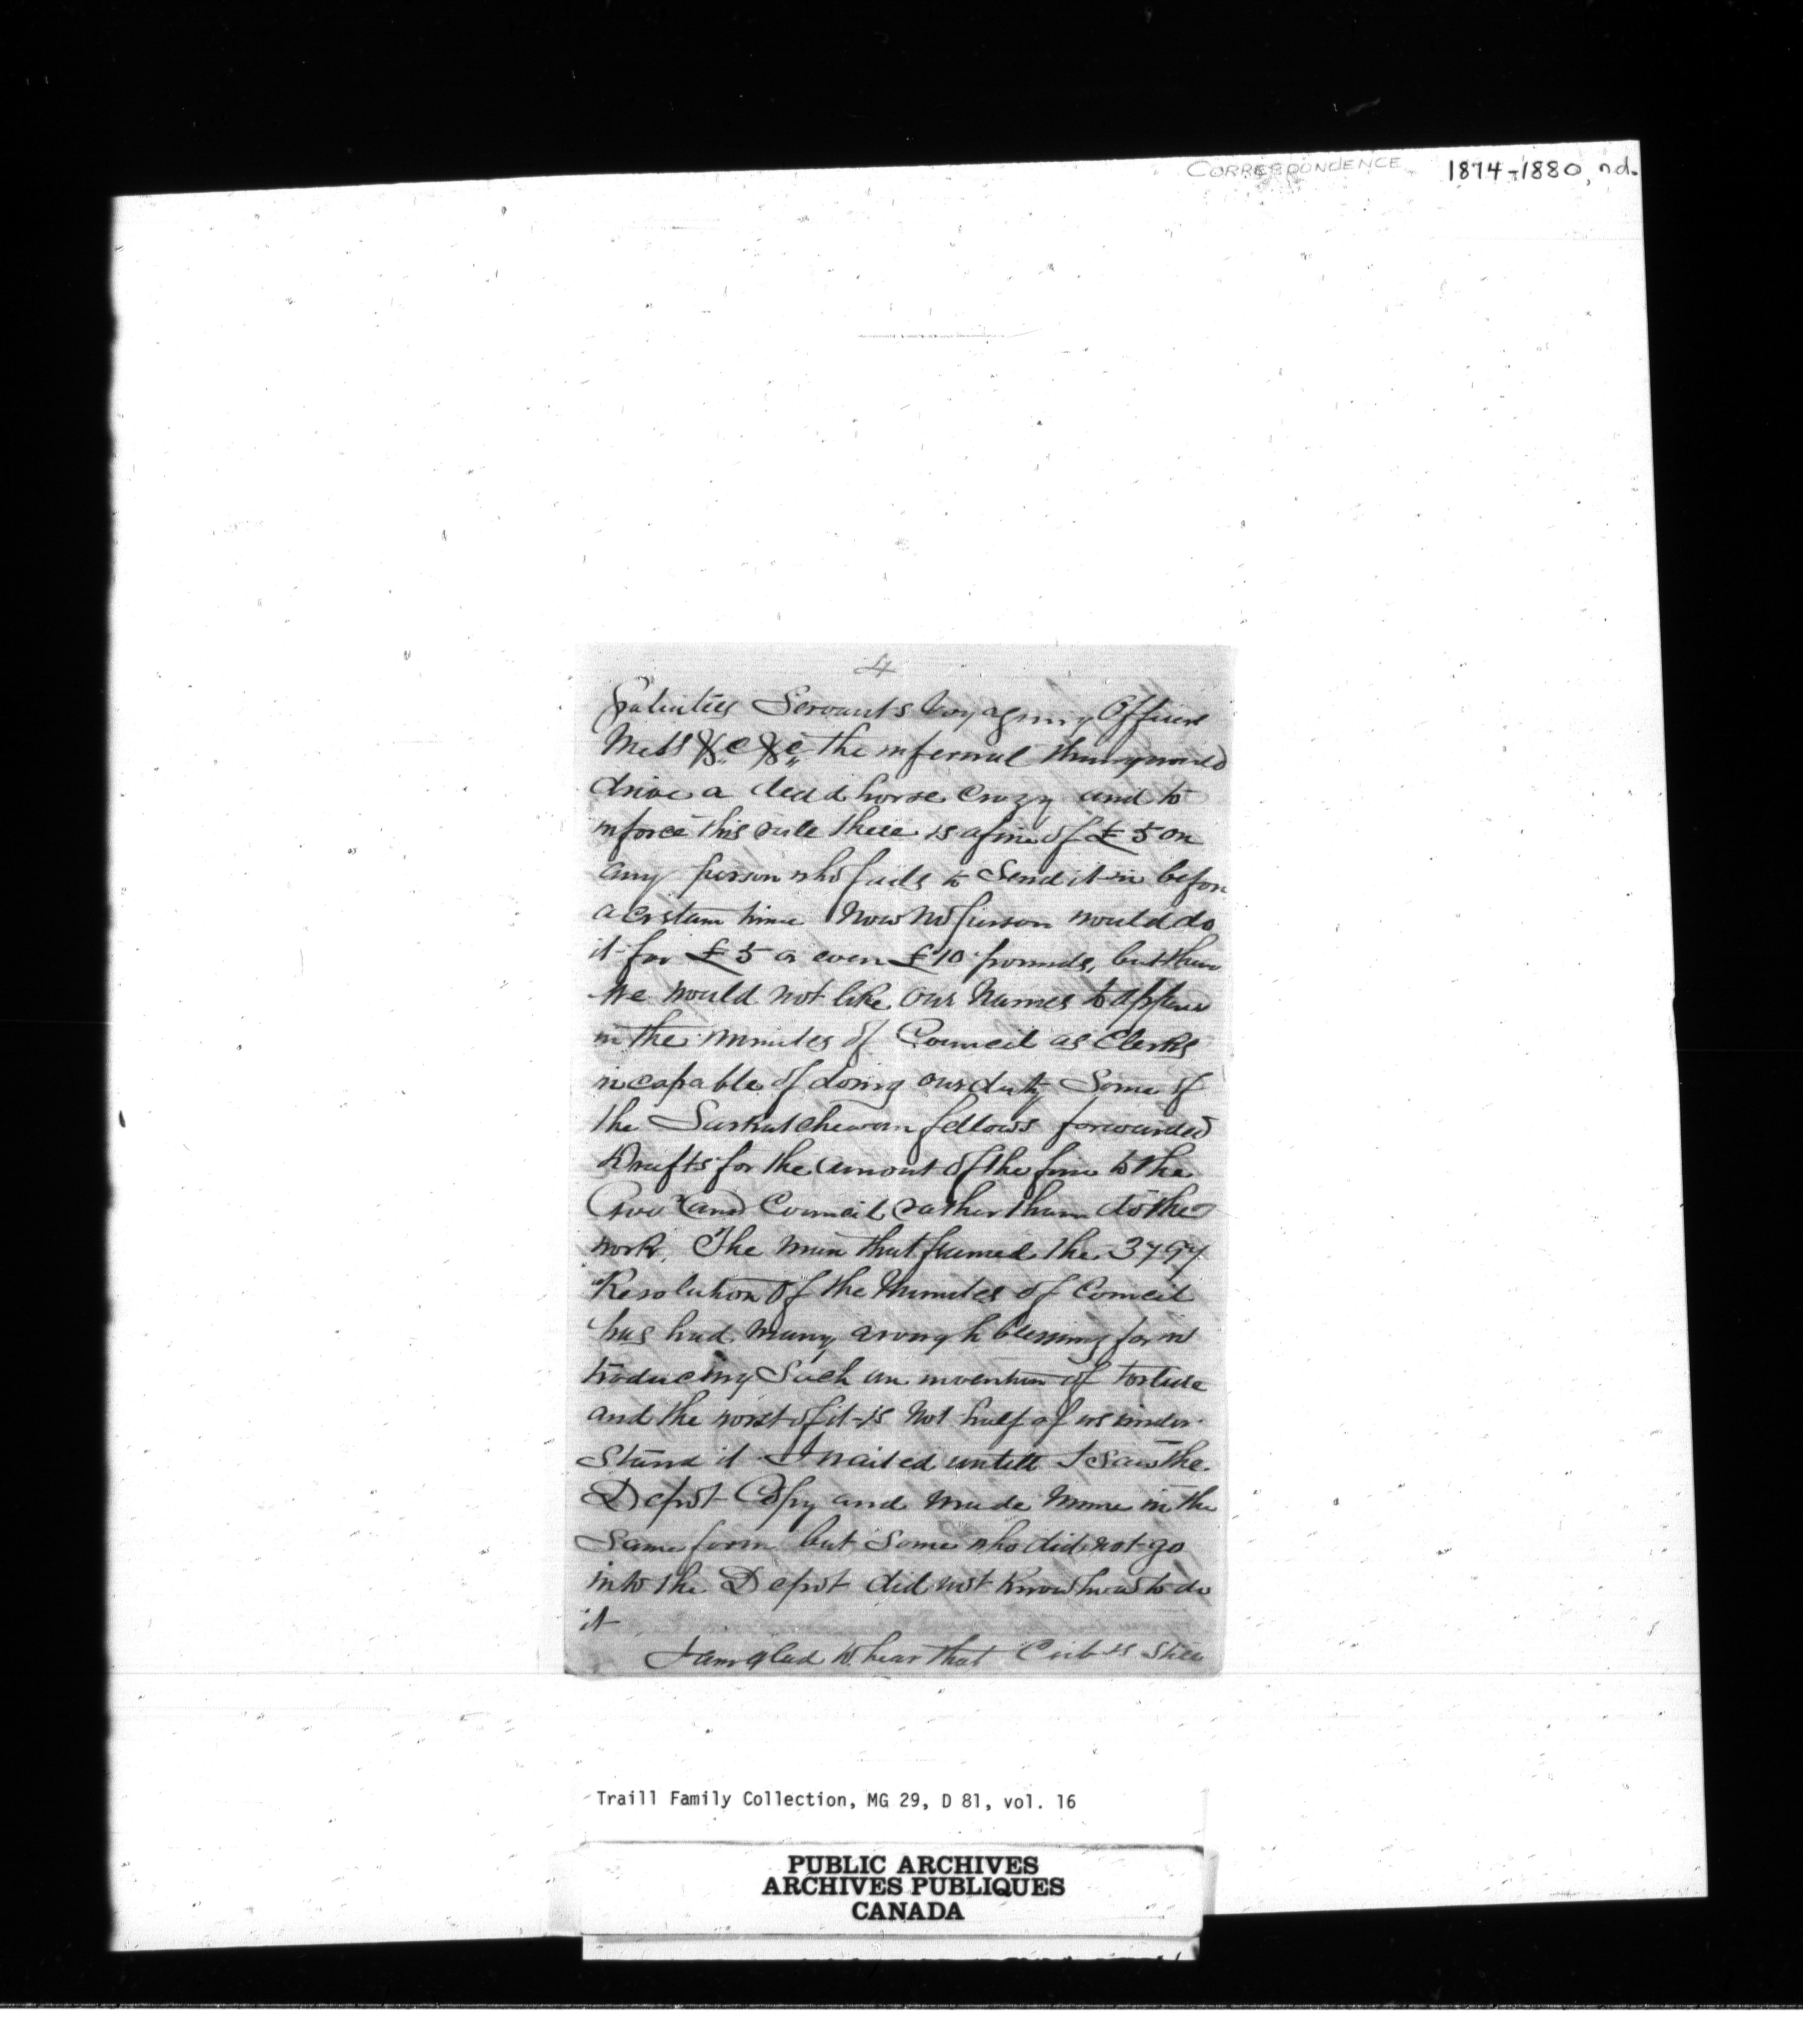 CORRESPONDENCE 1874-1880, n.d.
4
Gratuities Servants Voyaging Officers
Mess &c &c the infernal thing would
drive a dead horse Crazy and to
inforce this rule there is a fine of £5 on
any person who fails to Send it in before
a certain time Now no person would do
it for £5 or even £10 pounds, but then
we would not like our names to appear
in the minutes of Council as Clerks
incapable of doing our duty Some of
the Saskatchewan fellows forwarded
Drafts for the amount of the fine to the
Govr and Council rather than do the
work. The man that framed the
Resolution of the Minutes of Council
has had many a rough blessing for in
troducing Such an invention of torture
and the worst of it is not half of us under
stand it I waited untill I saw the
Depot Copy and made mine in the
Same form but Some who did not go
into the Depot did not know how to do
it
I am glad to hear that is still
Traill Family Collection, MG 29, D 81, vol. 16
PUBLIC ARCHIVES
ARCHIVES PUBLIQUES
CANADA